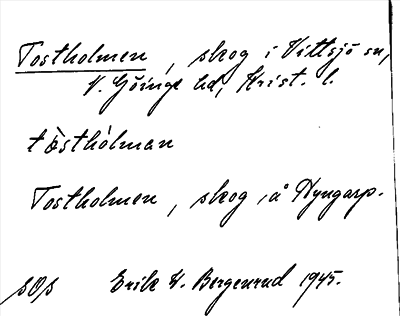 Tostholmen, skog i Vittsjö sn,
V. Göinge hd, Krist. l.
tòsthólman
Tostholmen, skog, å Hyngarp.
SOS Erik K. Bergenrud 1945.